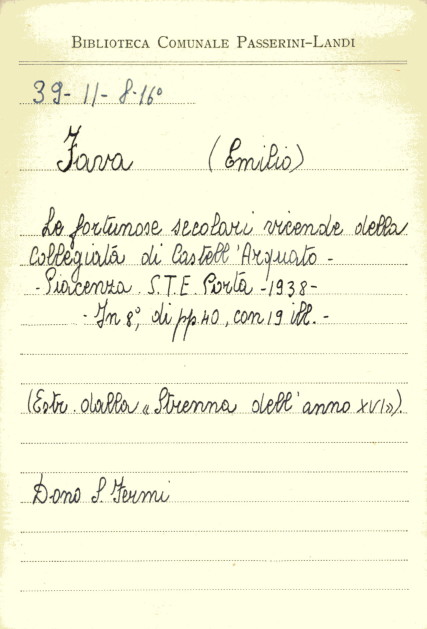 BIBLIOTECA COMUNALE PASSERINI-LANDI
39-11-8-16°
Fava (Emilio)
Le fortunose secolari vicende della
Collegiata di Castell'Arquato -
- Piacenza. S.T.E. Porta - 1938 -
- In 8°, di pp. 40, con 19 ill. -
(Estr. dalla « Strenna dell'anno XVI »).
Dono S. Fermi